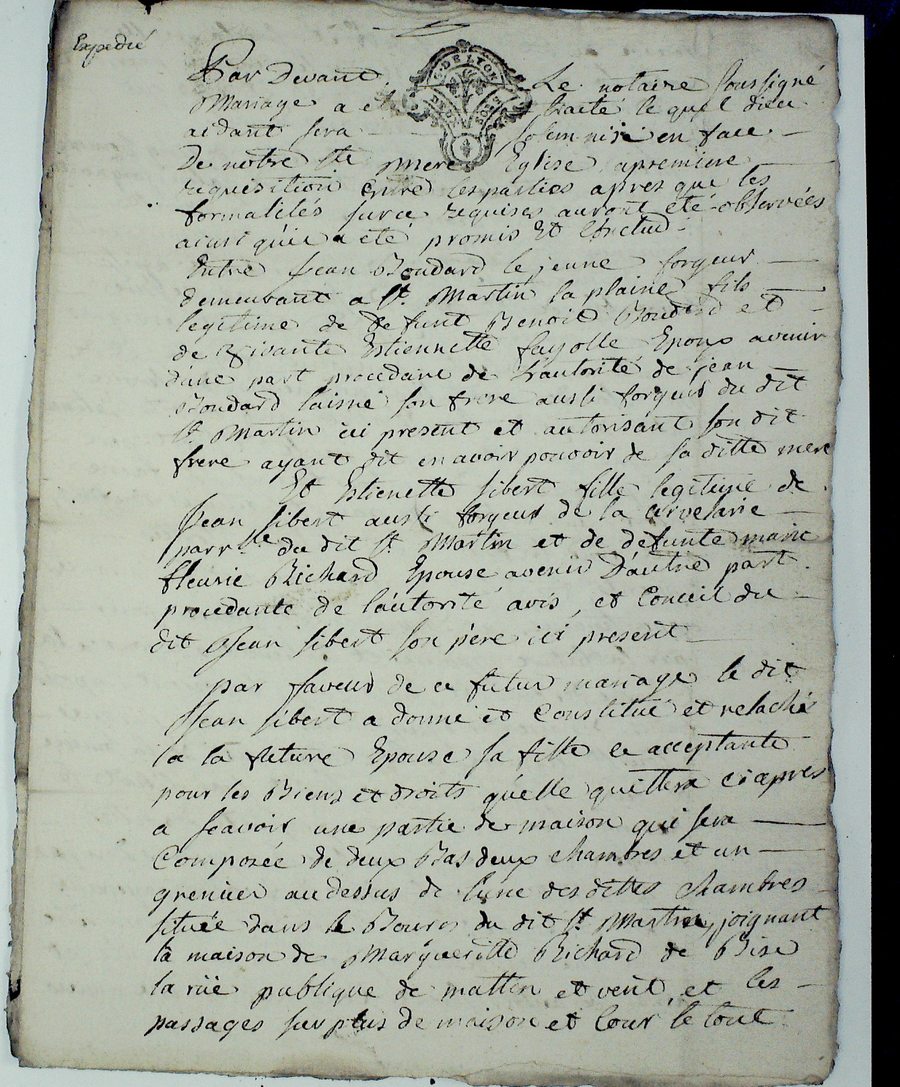 Expedié
G. DE LYON
DEUX SOLS
Par Devant Le notaire soussigné
Mariage a e traité le quel dieu
aidant sera solemnisé en face
De notre Ste mere Eglise a premiere
requisition entre les parties apres que les
formalités sur ce requises auront été observées
ainsi qu'il a été promis Et Conclud
Entre Jean Boudard le jeune forgeur
demeurant a St. Martin la plaine fils
legitime de defunt Benoit Boudard et
de vivante Estiennette fayolle Epoux avenir
d'une part procedant de l'autorité de jean
Boudard l'aisné son frere aussi forgeur du dit
St Martin ici present et autorisant son dit
frere ayant dit en avoir pouvoir de sa ditte mere
Et Estienette sibert fille legitime de
Jean sibert aussi forgeur de la
parrsse du dit St. Martin et de defunte marie
fleurie Richard Epouse avenir D'autre part
procedante de l'autorité avis, et Conceil du
dit Jean sibert son père ici present
par faveur de ce futur mariage le dit
Jean sibert a donné et Constitué et relaché
a la future Epouse sa fille ce acceptante
pour les Biens et droits qu'elle quittera ci apres
a scavoir une partie de maison qui sera
Composée de deux Bas deux chambres et un
grenier au dessus de l'une des dittes chambres
située dans le Bourg du dit St Martin, joignant
la maison de Margueritte Richard de Bise
la rüe publique de mattin et vent et les
passages sur plus de maison et Cour le tout